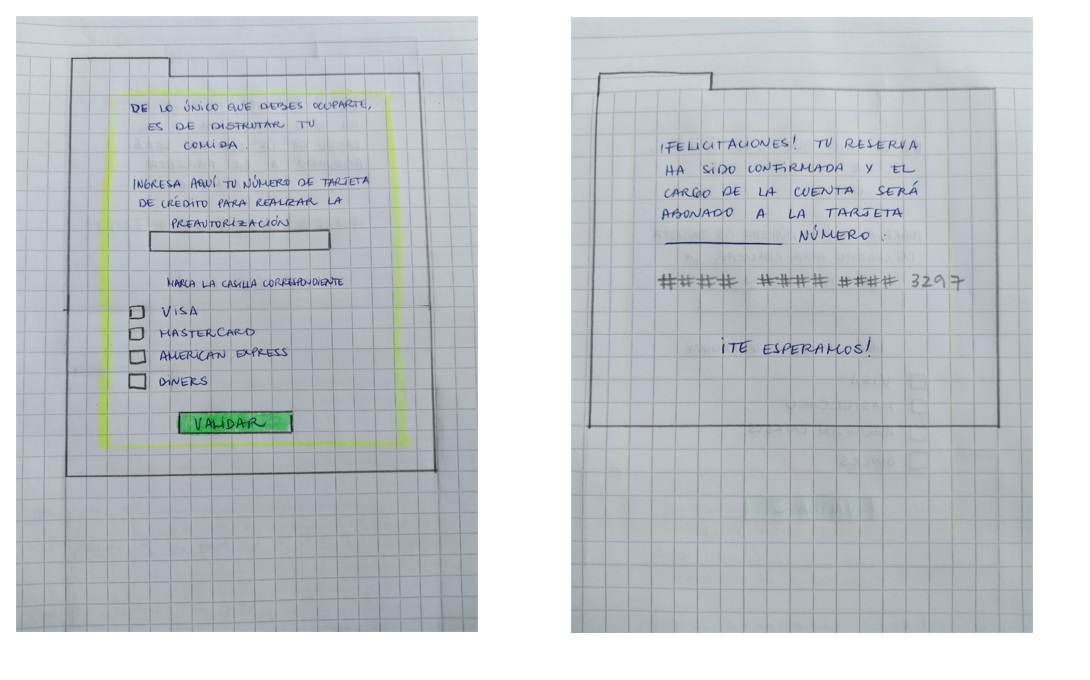 DE LO ÚNICO QUE DEBES OCUPARTE,
ES DE DISFRUTAR TU
COMIDA.
INGRESA AQUÍ TU NÚMERO DE TARJETA
DE CRÉDITO PARA REALIZAR LA
PREAUTORIZACIÓN
MARCA LA CASILLA CORRESPONDIENTE
VISA
MASTERCARD
AMERICAN EXPRESS
DINERS
VALIDAR
¡FELICITACIONES! TU RESERVA
HA SIDO CONFIRMADA Y EL
CARGO DE LA CUENTA SERÁ
ABONADO A LA TARJETA
__________ NÚMERO:
#### #### #### 3297
¡TE ESPERAMOS!